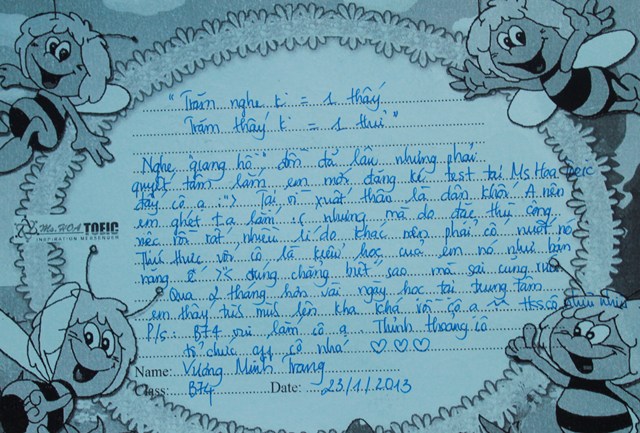 "Trăm nghe k = 1 thấy
Trăm thấy k = 1 thử"
Nghe "giang hồ" đồn đã lâu nhưng phải
quyết tâm lắm em mới đăng ký test tại Ms Hoa Toeic
đấy cô ạ :"> Tại vì xuất thân là dân khối A nên
em ghét t.a lắm :( nhưng mà do đặc thù công
việc rồi rất nhiều lí do khác nên phải cố nuốt nó
Thú thực với cô là kiểu học của em nó như bản
năng ý đúng chẳng biết sao mà sai cũng
Qua 2 tháng hơn vài ngày học tại trung tâm
em thấy lên kha khá rồi cô ạ ^^
P/s: B74 vui lắm cô ạ. Thỉnh thoảng cô
tổ chức off cô nhá ♡♡♡
Ms. HOA TOEIC
INSPIRATION MESSENGER
Name: Vương Minh Trang
Class: B74 Date: 23/1/2013